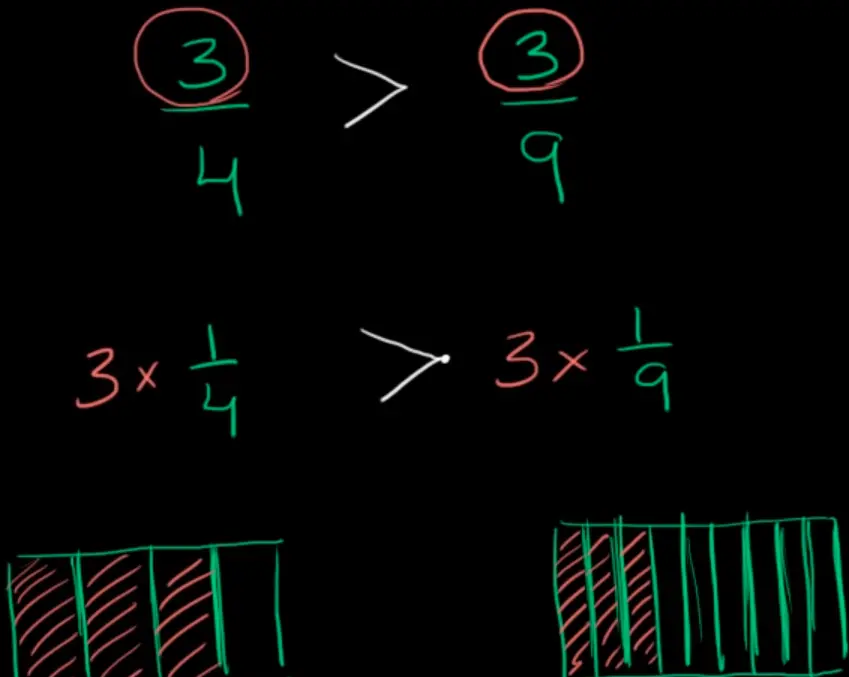 3/4 > 3/9
3 × 1/4 > 3 × 1/9